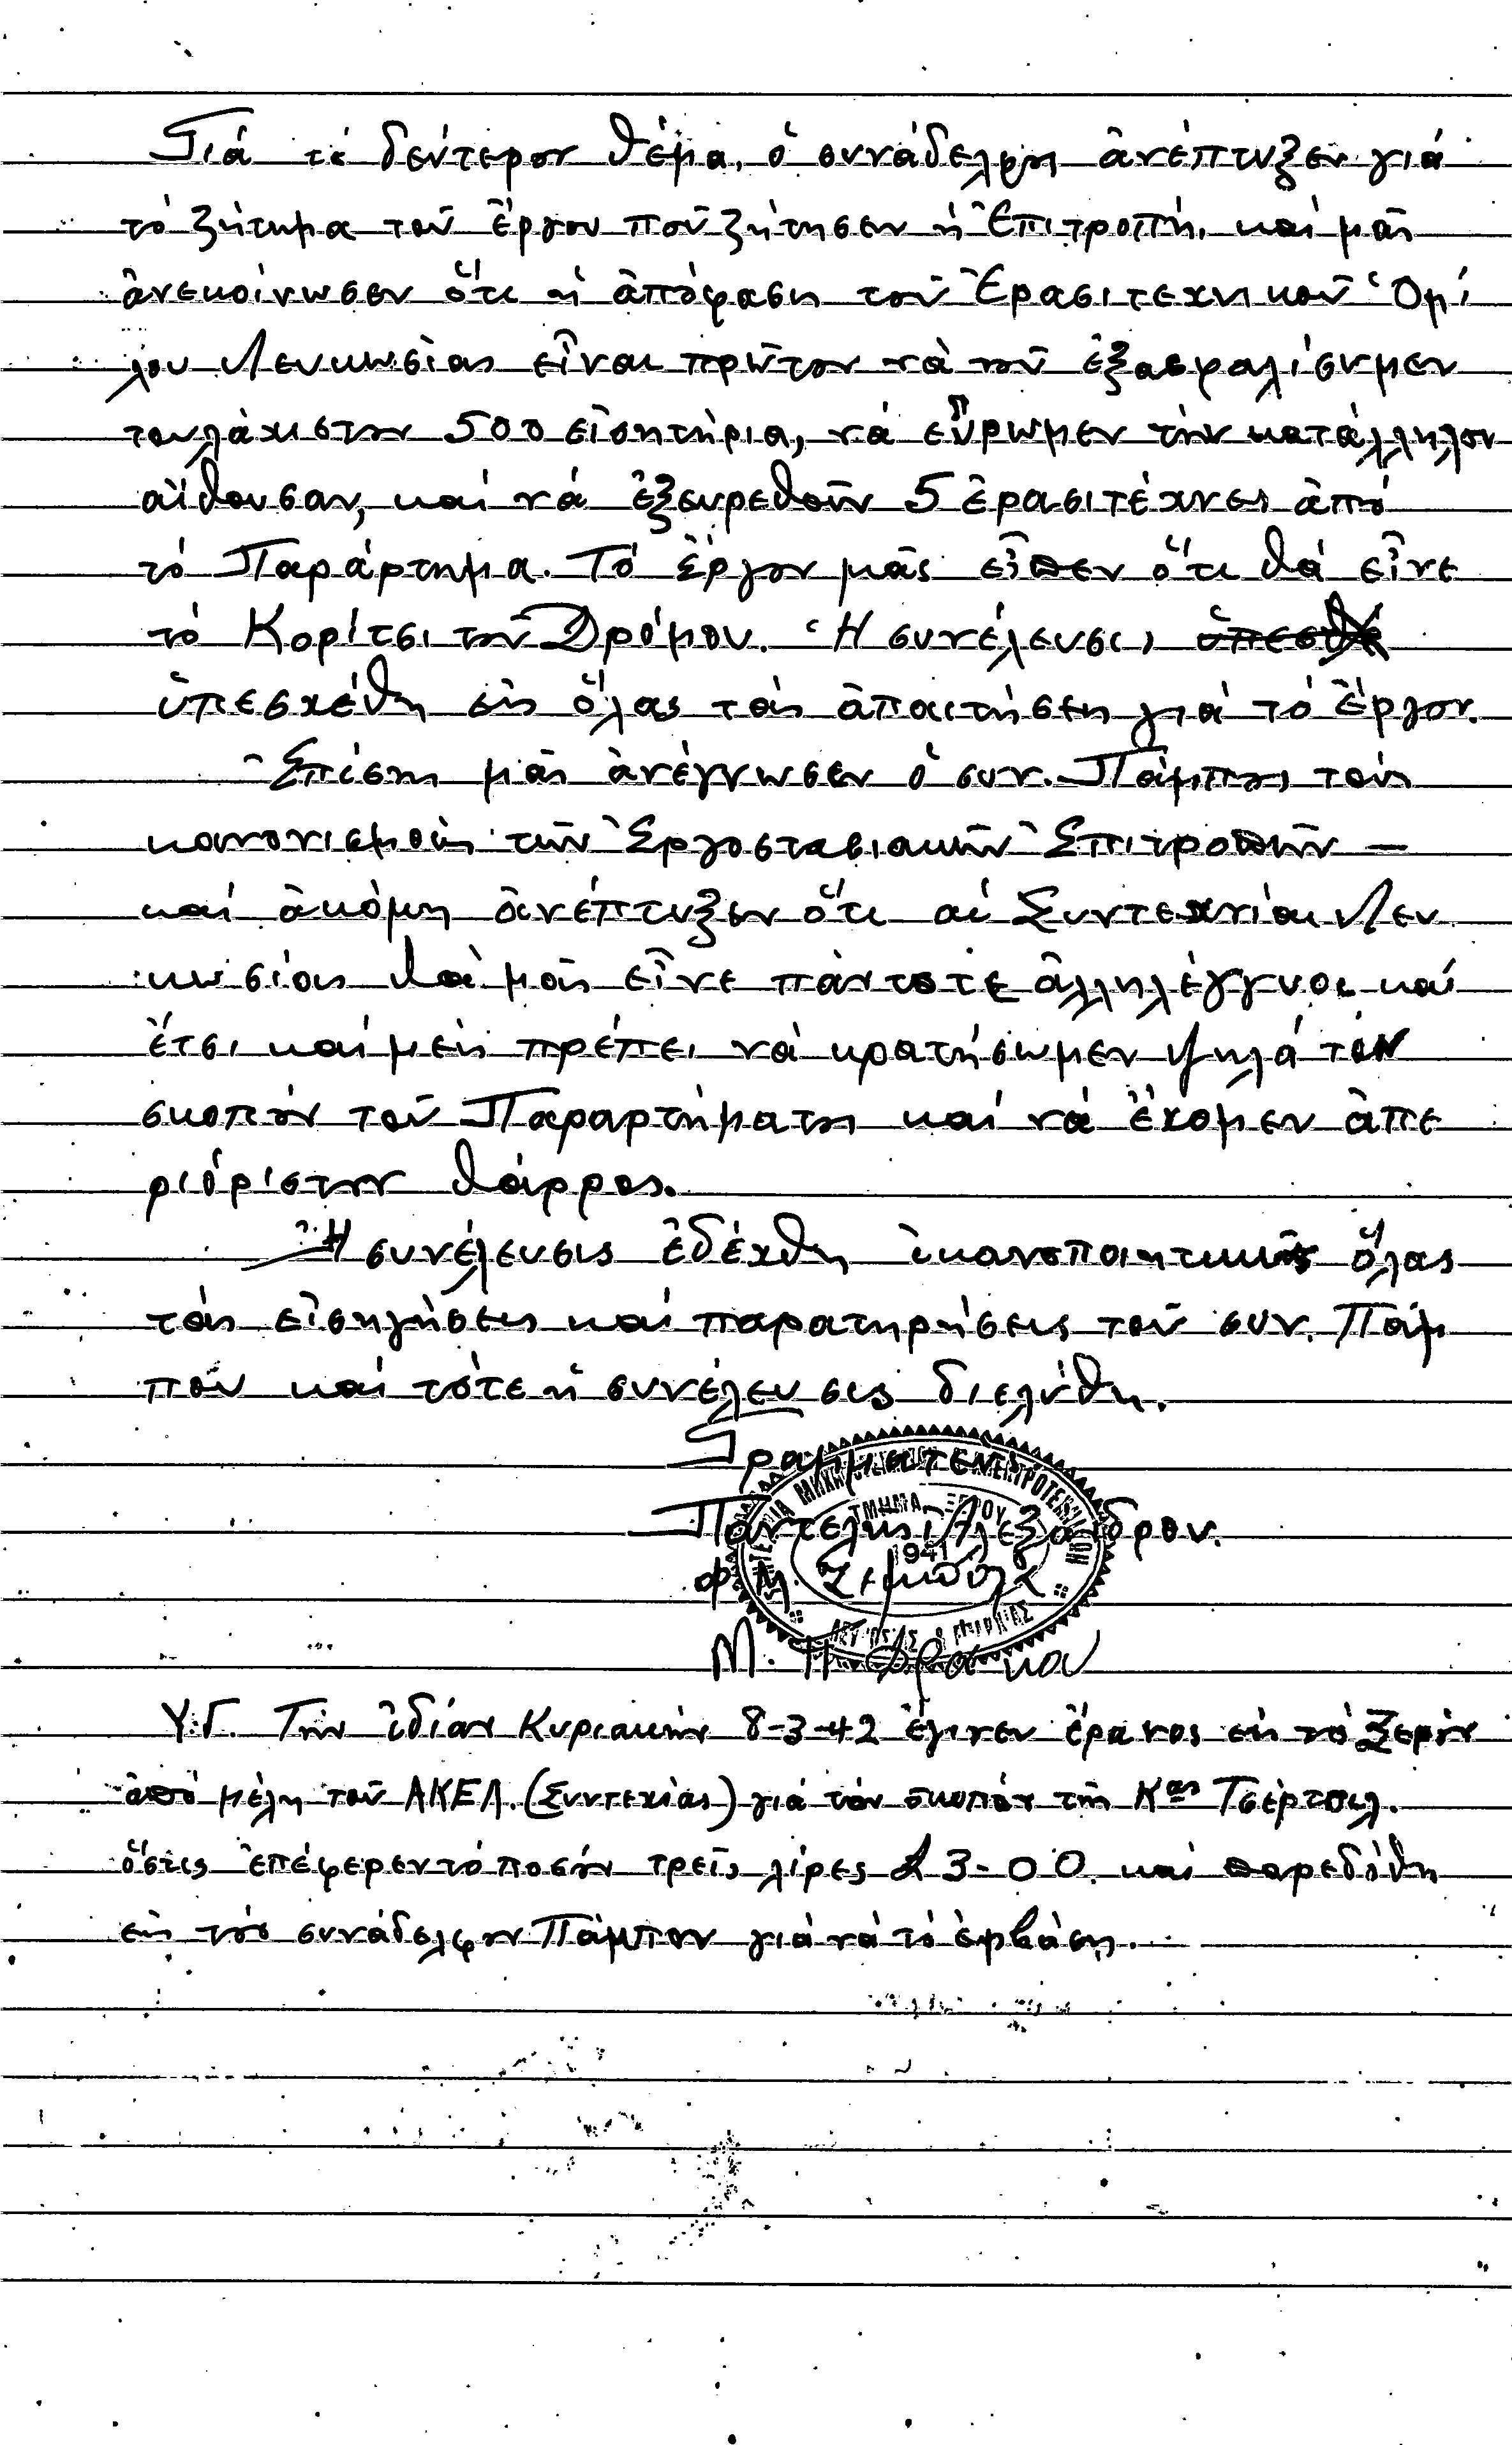 Γιά τό δεύτερον θέμα, ὁ συνάδελφος ἀνέπτυξεν γιά
τό ζήτημα τοῦ ἔργου ποῦ ζήτησεν ἡ Ἐπιτροπή, καί μᾶς
ἀνεκοίνωσεν ὅτι ἡ ἀπόφασις τοῦ Ἐρασιτεχνικοῦ Ὁμί
λου Λευκωσίας εἶναι πρῶτον νά τοῦ ἐξασφαλίσωμεν
τουλάχιστον 500 εἰσητήρια, νά εὕρωμεν τήν κατάλληλον
αἴθουσαν, καί νά ἐξευρεθοῦν 5 ἐρασιτέχνες ἀπό
τό Παράρτημα. Τό ἔργον μᾶς εἶπεν ὅτι θά εἶνε
τό Κορίτσι τοῦ Δρόμου. Ἡ συνέλευσις
ὑπεσχέθη εἰς ὅλας τάς ἀπαιτήσεις γιά τό ἔργον.
Ἐπίσης μᾶς ἀνέγνωσεν ὁ συν. Πάμπος τούς
κανονισμούς τῶν Ἐργοστασιακῶν Ἐπιτροπῶν —
καί ἀκόμη ἀνέπτυξεν ὅτι αἱ Συντεχνίαι Λευ
κωσίας θά μᾶς εἶνε πάντοτε ἀλληλέγγυοι καί
ἔτσι καί μεῖς πρέπει νά κρατήσωμεν ψηλά τόν
σκοπόν τοῦ Παραρτήματος καί νά ἔχομεν ἀπε
ριόριστον θάρρος.
Ἡ συνέλευσις ἐδέχθη ἱκανοποιητικῶς ὅλας
τάς εἰσηγήσεις καί παρατηρήσεις τοῦ συν. Πάμ
που καί τότε ἡ συνέλευσις διελύθη.
Γραμματεύς
Παντελής Ἀλεξάνδρου.
ΤΜΗΜΑ ΞΕΡΟΥ
1941
Υ.Γ. Τήν ἰδίαν Κυριακήν 8-3-42 ἔγινεν ἔρανος εἰς τό Ξερόν
ἀπό μέλη τοῦ ΑΚΕΛ. (Συντεχίας) γιά τόν σκοπόν τῆς Κας Τσέρτσιλ.
ὅστις ἐπέφερεν τό ποσόν τρεῖς λίρες £3-00. καί παρεδόθη
εἰς τόν συνάδελφον Πάμπον γιά νά τό ἐμβάσῃ.